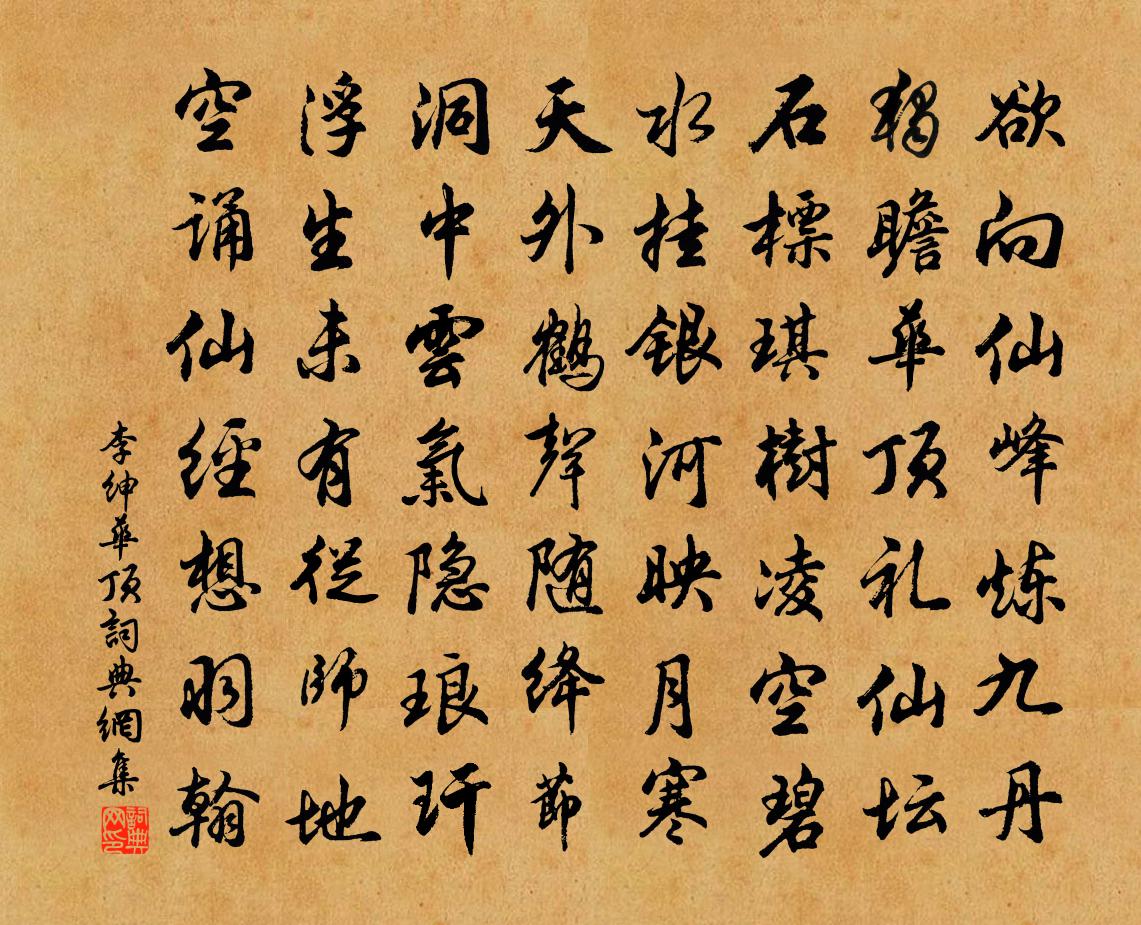 欲向仙峰炼九丹
独瞻華頂礼仙坛
石標琪樹凌空碧
水挂银河映月寒
天外鹤聲随绛節
洞中雲氣隐琅玕
浮生未有從師地
空诵仙經想羽翰
李紳華頂詞典網集
詞典网印